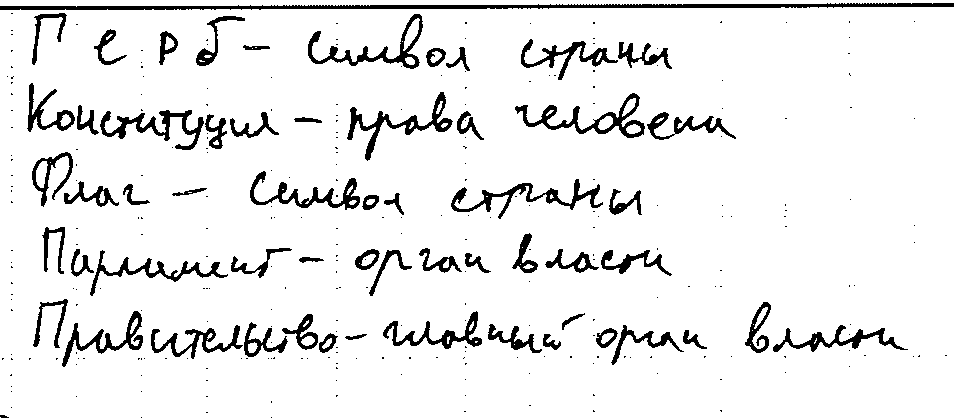 Герб – символ страны
Конституция – права человека
Флаг – символ страны
Парлимент – орган власти
Правительство – главный орган власти